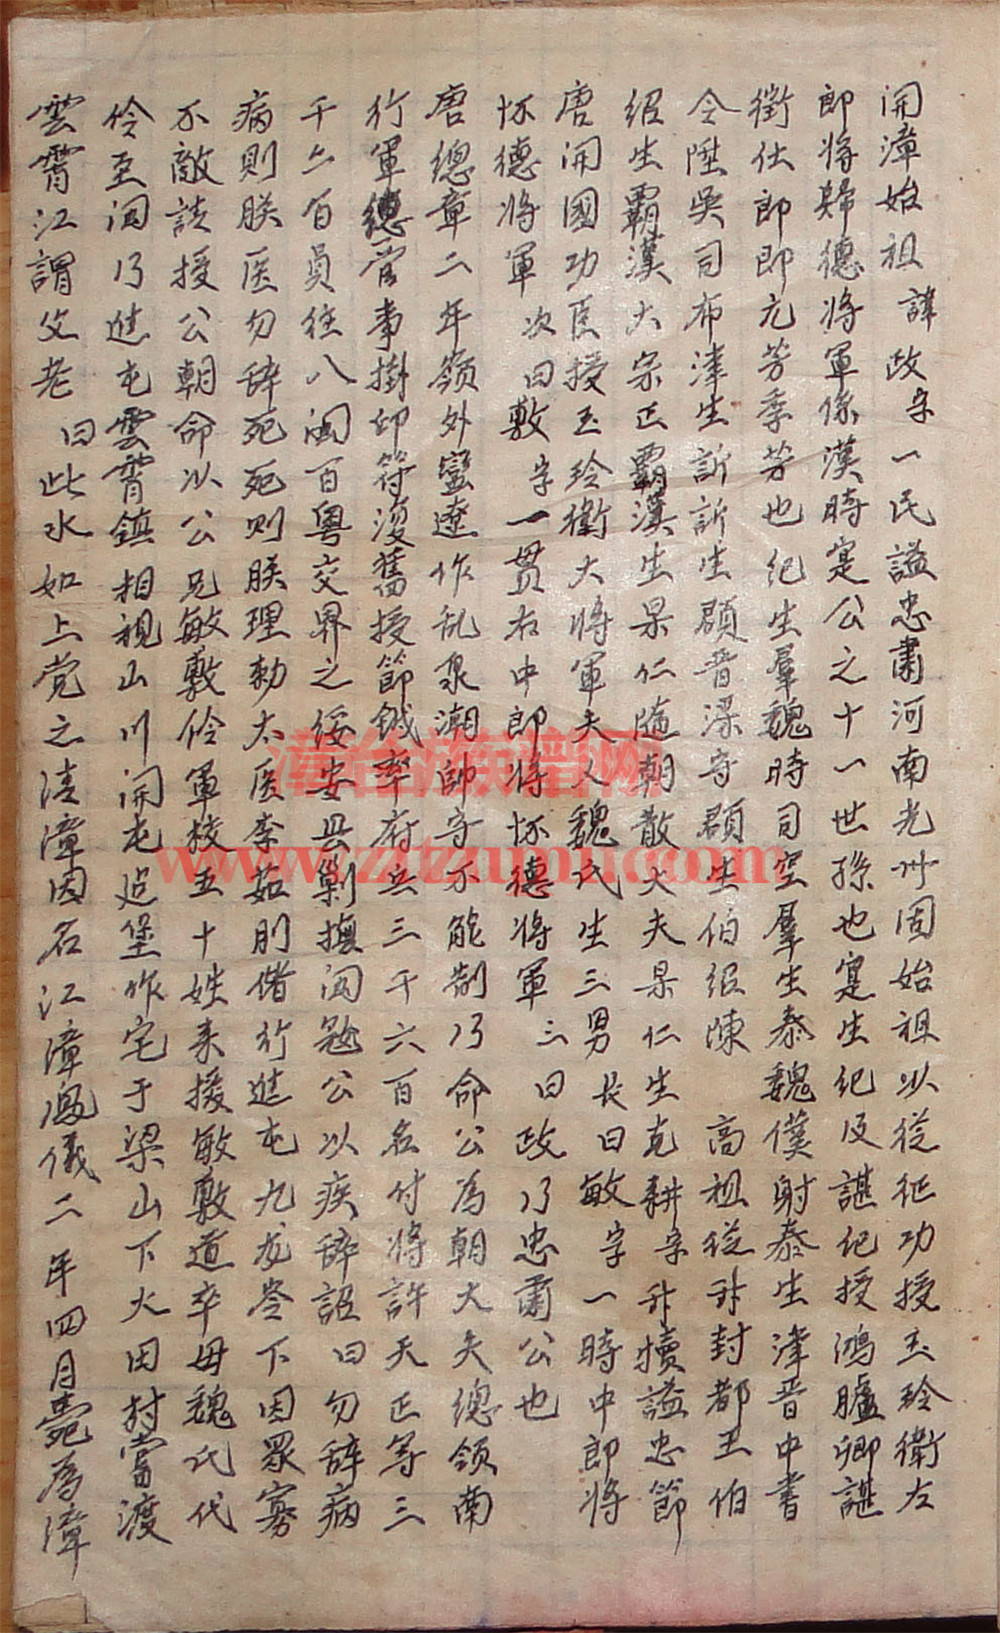 開漳始祖 諱政字一民謚忠肅河南光州固始祖以從征功授玉玲衛左
郎将歸德将軍係漢時寔公之十一世孫也寔生纪及諶纪授鴻臚卿諶
徵仕郎即元芳季芳也纪生羣魏時司空羣生泰魏僕射泰生準晋中書
令陞吳司布準生訢訢生頵晋梁守頵生伯绍陳 高祖從升封都王伯
绍生霸漢大宗正霸漢生杲仁隨朝散大夫杲仁生克耕字升犢謚忠節
唐開國功臣授玉玲衛大将軍夫人魏氏生三男 長曰敏字一時中郎将
怀德将軍 次曰敷字一贯右中郎将怀德将軍 三曰政乃忠肅公也
唐總章二年嶺外蠻遼作乱泉潮帥守不能制乃命公為朝大夫總领南
行軍總管事掛印符復舊授節鉞率府兵三千六百名付将許天正等三
千六百員往八闽百粤交界之綏安县剿撫闽 公以疾辞詔曰勿辞病
病則朕医勿辞死死则朕理勅太医李茹刖偖行進屯九龙岺下因眾寡
不敵請授公朝命以公兄敏敷伶軍校五十姓来援敏敷道卒母魏氏代
伶至闽乃進屯雲霄鎮相視山川開屯造堡作宅于梁山下火田村當渡
雲霄江謂父老 曰此水如上党之清漳因名江漳鳳儀二年四月薨為漳
漳台族譜网
www.ztzupu.com